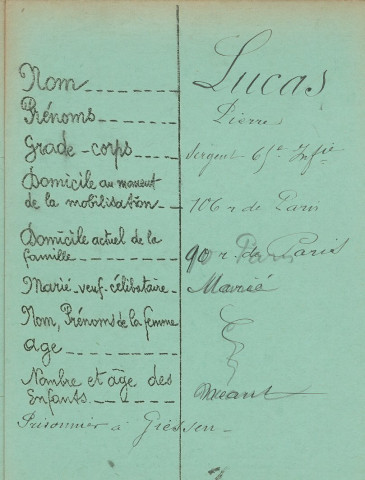 Nom Lucas
Prénoms Pierre
Grade-corps Sergent 65e Infie
Domicile au moment
de la mobilisation 106 r de Paris
Domicile actuel de la
famille 90 r. de Paris
Marié-veuf-célibataire Marié
Nom, Prénoms de la femme
age
Nombre et âge des
Enfants Néant
Prisonnier à Giessen